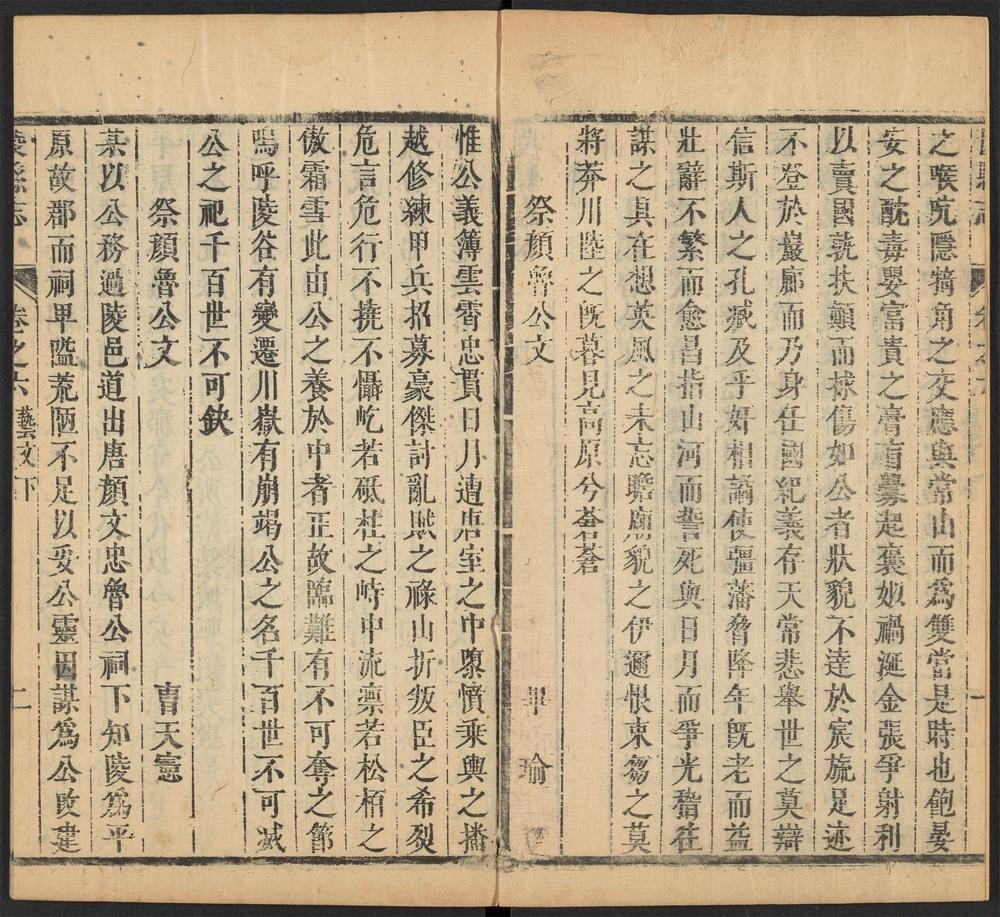 之喉吭隱犄角之交應與常山而爲雙當是時也飽晏
安之酖毒嬰富貴之膏肓釁起褒姒禍涎金張爭射利
以賣國孰扶顛而捄傷如公者狀貌不達於宸旒足迹
不登於巖廊而乃身任國紀義存天常悲舉世之莫辯
信斯人之孔臧及乎奸相謫使疆藩脅降年既老而益
壯辭不繁而愈昌指山河而誓死與日月而爭光豬在
謀之具在想英風之未忘瞻廟貌之伊邇恨束芻之莫
將莽川陸之既暮見高原兮蒼蒼
祭顔魯公文 畢瑜
惟公義簿雲霄忠貫日月遭唐室之中隳憤乘輿之播
越修練甲兵招募豪傑討亂賊之祿山折叛臣之希烈
危言危行不撓不懾屹若砥柱之峙中流凛若松栢之
傲霜雪此由公之養於中者正故臨難有不可奪之節
嗚呼陵谷有變遷川嶽有崩竭公之名千百世不可滅
公之祀千百世不可缺
祭顔魯公文 曹天憲
某以公務過陵邑道出唐顔文忠魯公祠下知陵爲平
原故郡而祠卑隘荒陋不足以妥公靈因謀爲公改建
陵縣志 卷之六 藝文下 二